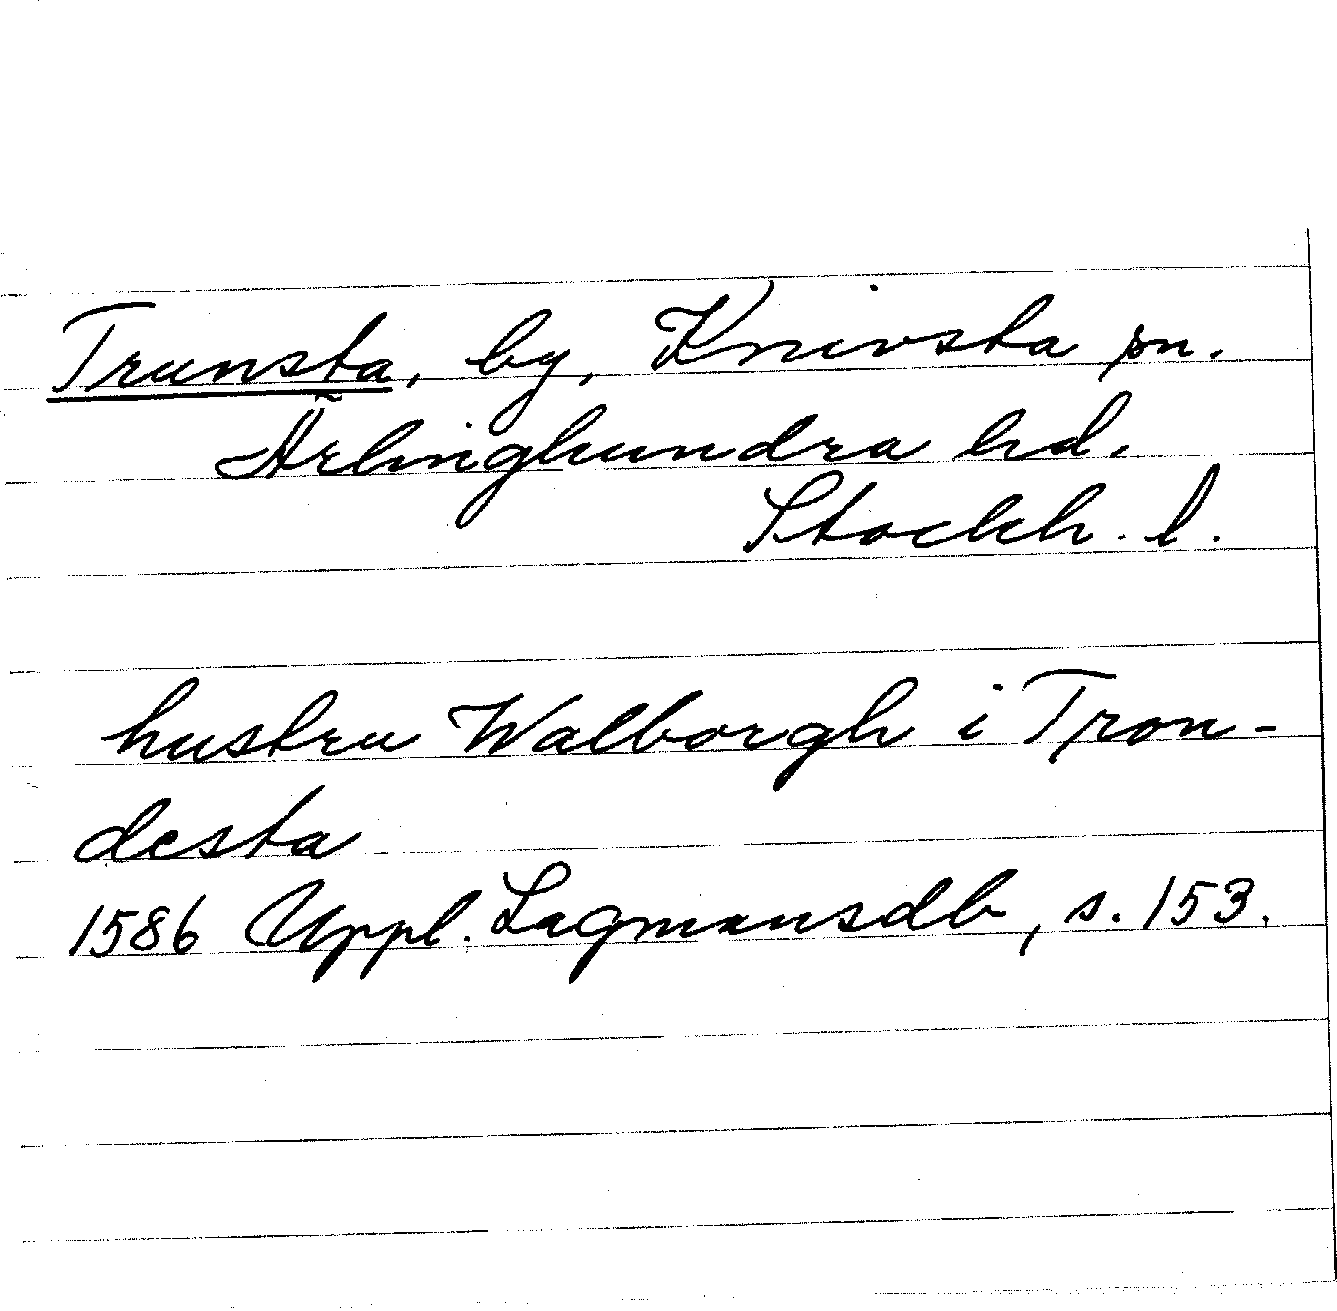 Trunsta, by, Knivsta sn.
Ärlinghundra hd.
Stockh. l.
hustru Walborgh i Tron-
desta
1586 Uppl. Lagmansdb, s. 153.